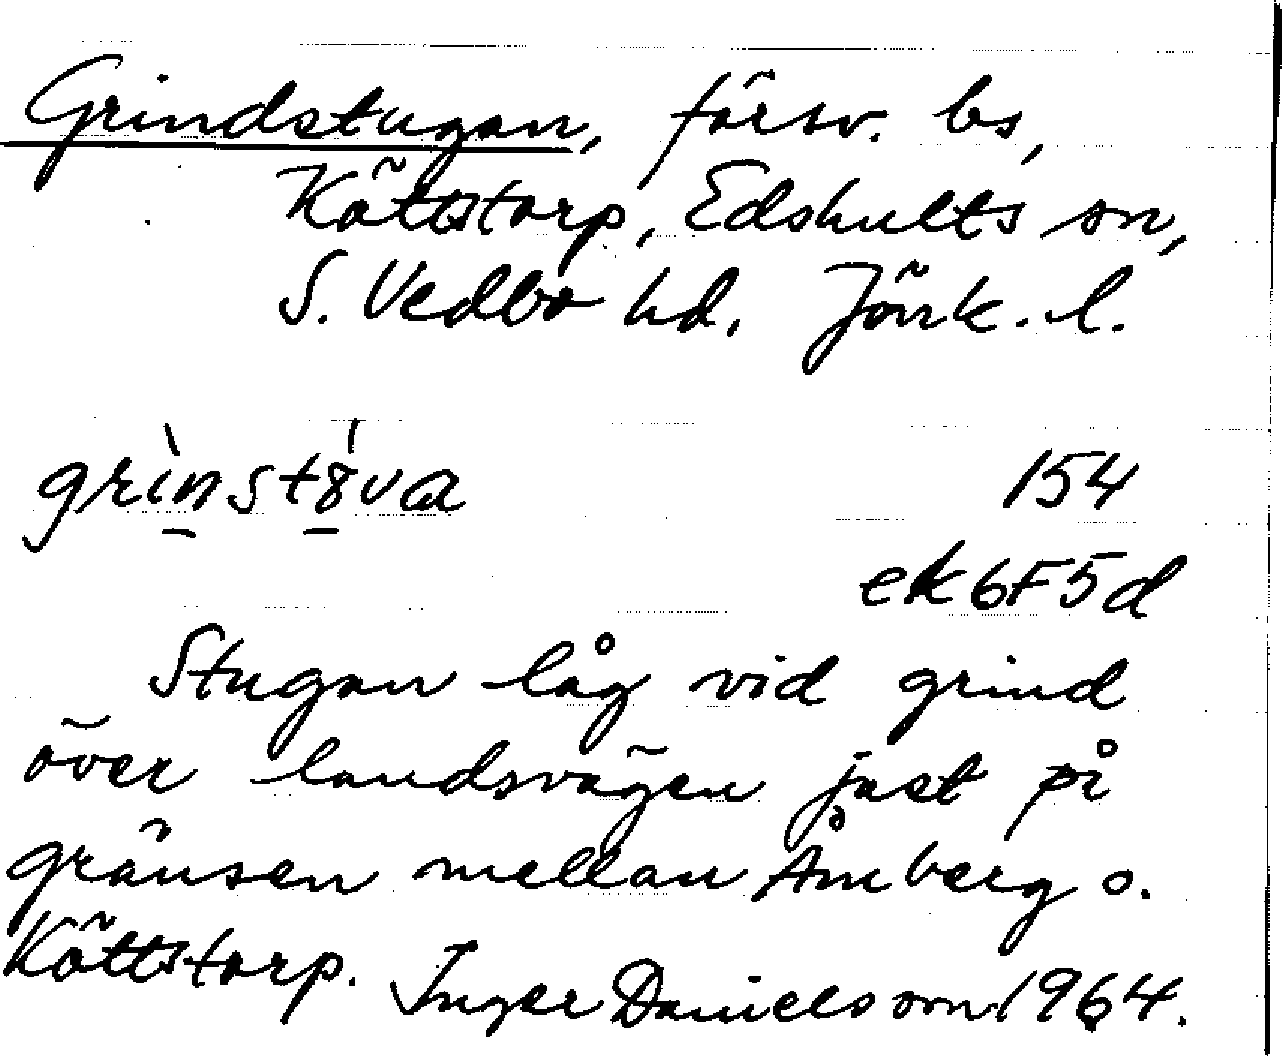 Grindstugan, försv. bs,
Köttstorp, Edshults sn,
S. Vedbo hd. Jönk. l.
grìnst8́va 154
ek 6F5d
Stugan låg vid grind
över landsvägen just på
gränsen mellan Åmberg o.
Köttstorp. Inger Danielsson 1964.